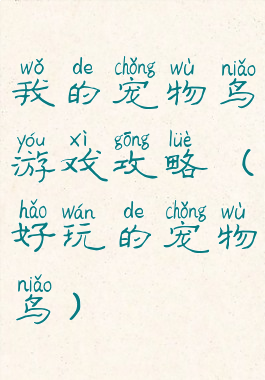 wǒ de chǒng wù niǎo
我的宠物鸟
yóu xì gōng lüè
游戏攻略（
hǎo wán de chǒng wù
好玩的宠物
niǎo
鸟）